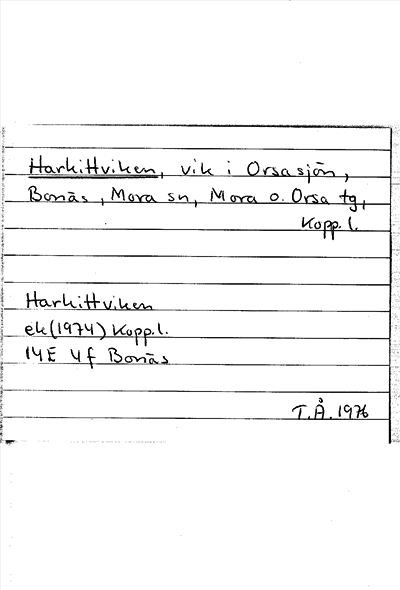 Harkittviken, vik i Orsasjön,
Bonäs, Mora sn, Mora o. Orsa tg,
Kopp. l.
Harkittviken
ek (1974) Kopp.l.
14E 4f Bonäs
T.Å. 1976